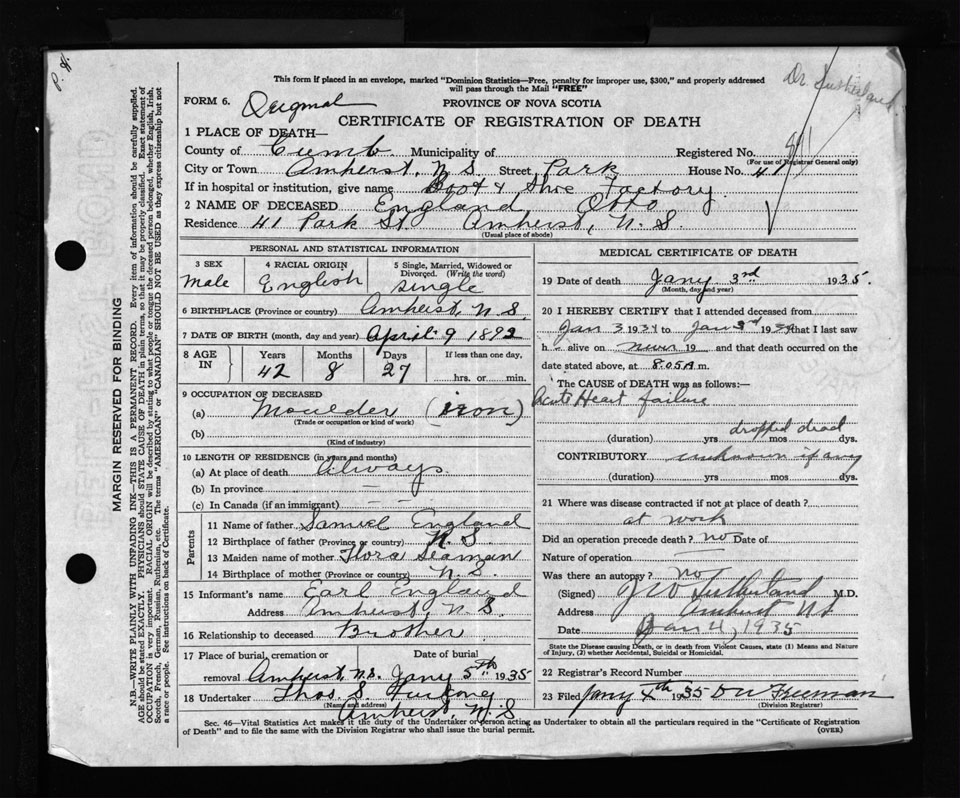 P. H.
Dr. Sutherland
This form if placed in an envelope, marked "Dominion Statistics—Free, penalty for improper use, $300," and properly addressed
will pass through the Mail "FREE"
FORM 6. Original
PROVINCE OF NOVA SCOTIA
CERTIFICATE OF REGISTRATION OF DEATH
1 PLACE OF DEATH—
County of Cumb. Municipality of Registered No.
(For use of Registrar General only)
City or Town Amherst, N.S. Street Park House No. 41
If in hospital or institution, give name Boot & Shoe Factory
2 NAME OF DECEASED England Otto
Residence 41 Park St. Amherst, N.S.
(Usual place of abode)
PERSONAL AND STATISTICAL INFORMATION
3 SEX
Male
4 RACIAL ORIGIN
English
5 Single, Married, Widowed or
Divorced. (Write the word)
Single
6 BIRTHPLACE (Province or country) Amherst, N.S.
7 DATE OF BIRTH (month, day and year) April 9 1892
8 AGE IN
Years Months Days If less than one day,
42 8 27 hrs. or min.
9 OCCUPATION OF DECEASED
(a) Moulder (iron)
(Trade or occupation or kind of work)
(b)
(Kind of industry)
10 LENGTH OF RESIDENCE (in years and months)
(a) At place of death Always
(b) In province
(c) In Canada (if an immigrant)
Parents
11 Name of father Samuel England
12 Birthplace of father (Province or country) N.S.
13 Maiden name of mother Flora Seaman
14 Birthplace of mother (Province or country) N.S.
15 Informant's name Earl England
Address Amherst N.S.
16 Relationship to deceased Brother
17 Place of burial, cremation or Date of burial
removal Amherst N.S. Jany 5th 1935
18 Undertaker Thos. S. Furlong
(Name and address)
Amherst, N.S
MEDICAL CERTIFICATE OF DEATH
19 Date of death Jany 3rd 1935.
(Month, day and year)
20 I HEREBY CERTIFY that I attended deceased from
Jan 3 1934 to Jan 3rd 1934 that I last saw
h alive on never 19 and that death occurred on the
date stated above, at 8.05A m.
The CAUSE OF DEATH was as follows:—
Acute Heart failure
dropped dead
(duration) yrs mos dys.
CONTRIBUTORY unknown if any
(duration) yrs mos dys.
21 Where was disease contracted if not at place of death?
at work
Did an operation precede death? no Date of
Nature of operation
Was there an autopsy? no
(Signed) J W Sutherland M.D.
Address Amherst NS
Date Jan 4, 1935
State the Disease causing Death, or in death from Violent Causes, state (1) Means and Nature
of Injury, (2) whether Accidental, Suicidal or Homicidal.
22 Registrar's Record Number
23 Filed Jany 4th 1935 D W Freeman
(Division Registrar)
Sec. 46—Vital Statistics Act makes it the duty of the Undertaker or person acting as Undertaker to obtain all the particulars required in the "Certificate of Registration
of Death" and to file the same with the Division Registrar who shall issue the burial permit. (OVER)
MARGIN RESERVED FOR BINDING
N.B.—WRITE PLAINLY WITH UNFADING INK—THIS IS A PERMANENT RECORD. Every item of information should be carefully supplied.
AGE should be stated EXACTLY. PHYSICIANS should STATE CAUSE OF DEATH in plain terms, so that it may be properly classified. Exact statement of
OCCUPATION is very important. RACIAL ORIGIN will be described by stating to what people or tongue the deceased person belonged, whether English, Irish,
Scotch, French, German, Russian, Ruthenian, etc. The terms "AMERICAN" or "CANADIAN" SHOULD NOT BE USED as they express citizenship but not
a race or people. See instructions on back of Certificate.